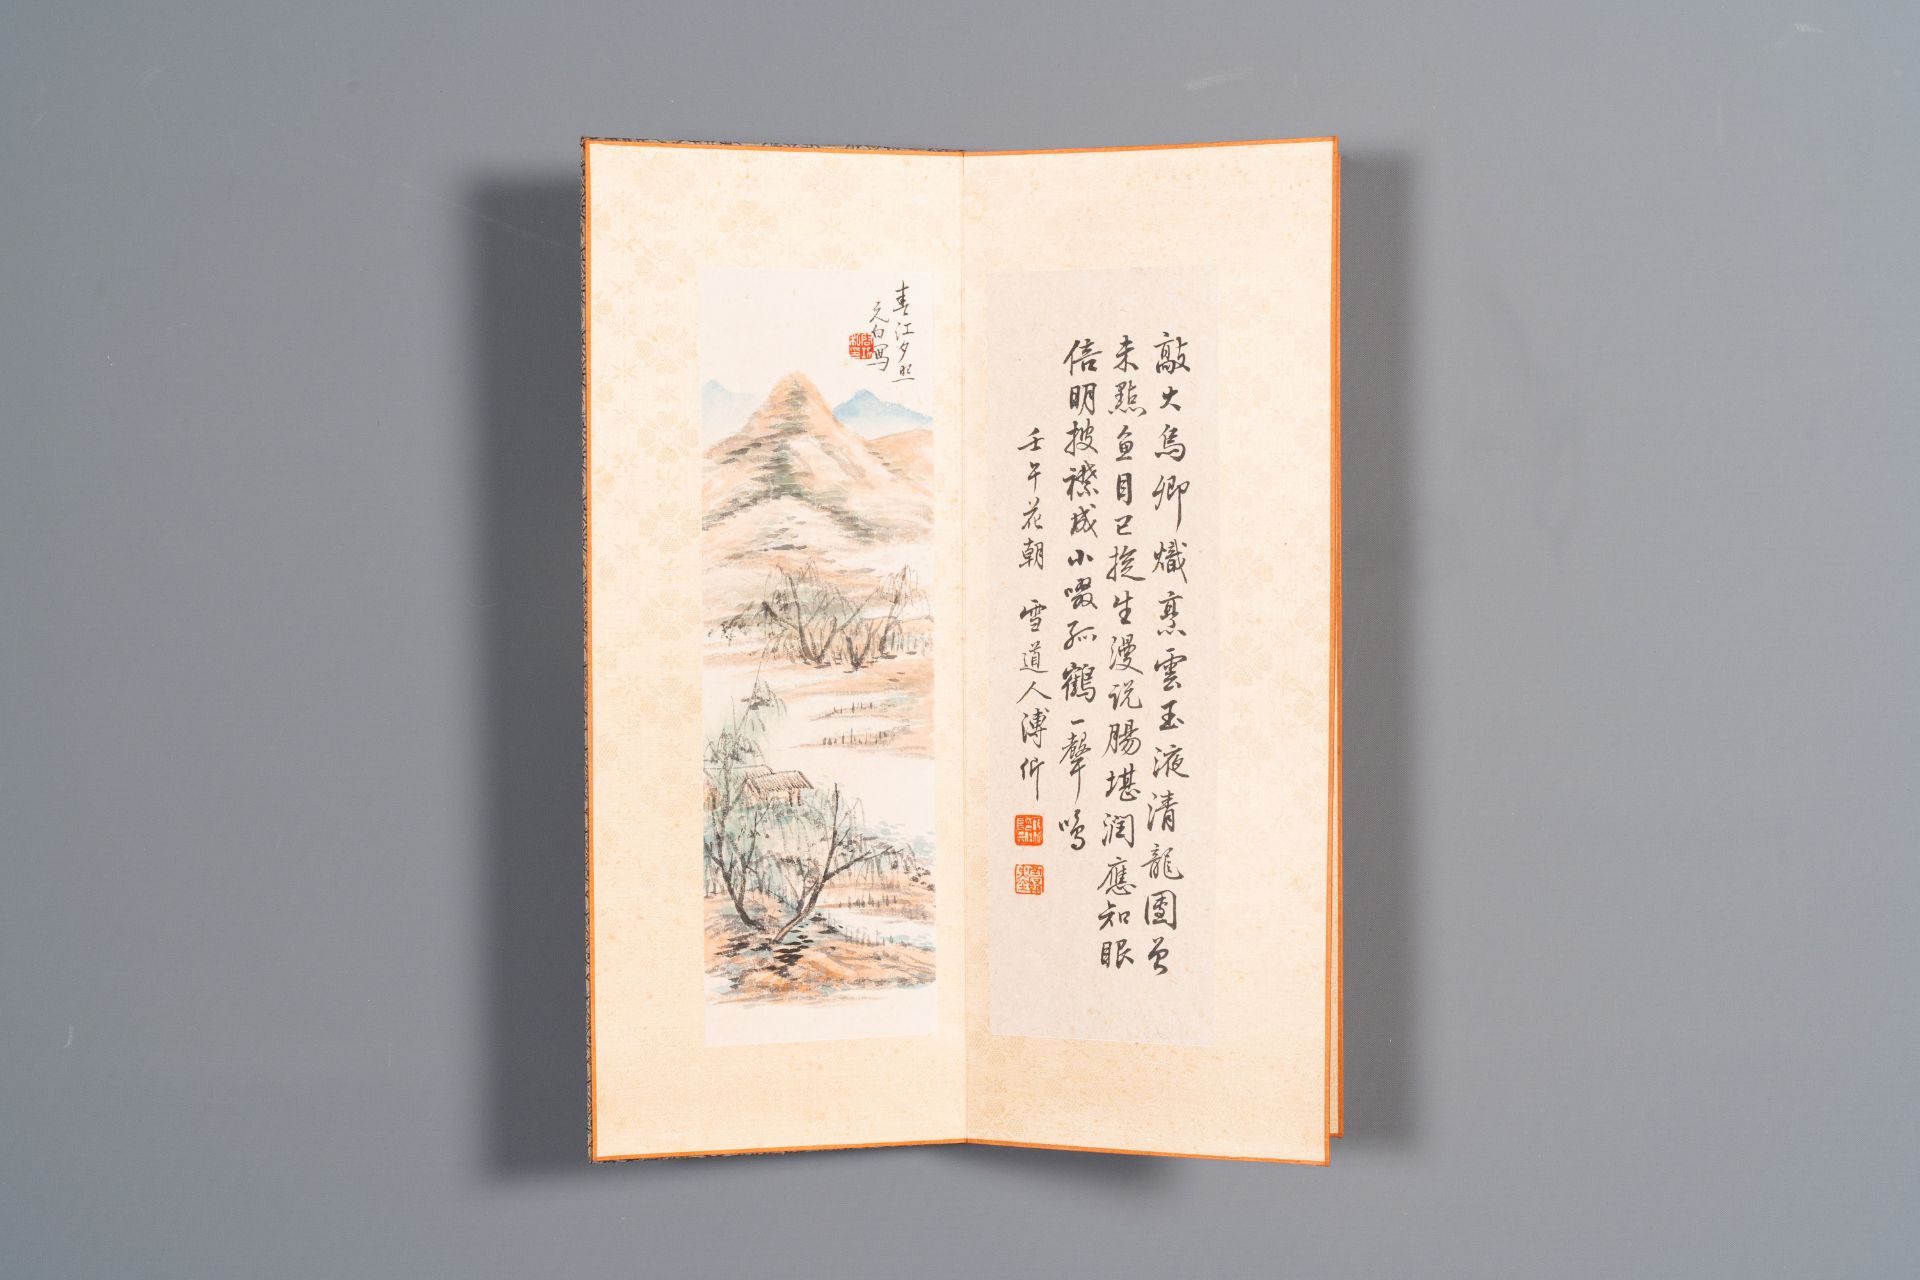 敲火烏卿熾烹雲玉液清龍團曾
未點魚目已旋生漫说腸堪润應知眼
倍明披襟成小啜孤鶴一聲鳴
壬午花朝 雪道人溥伒
春江夕照
元白写